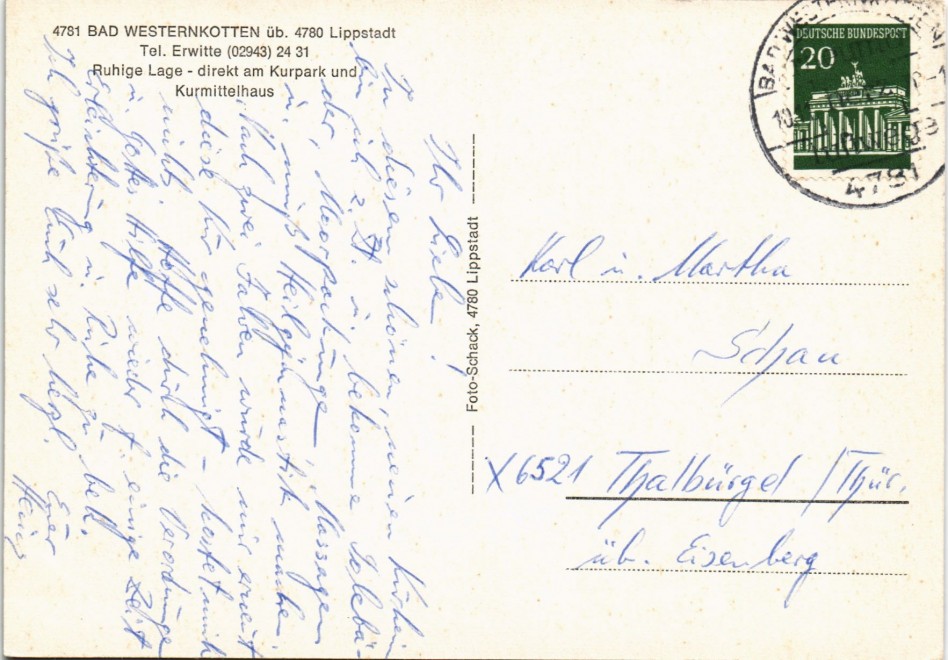 4781 BAD WESTERNKOTTEN üb. 4780 Lippstadt
Tel. Erwitte (02943) 24 31
Ruhige Lage - direkt am Kurpark und
Kurmittelhaus
Ihr Lieben!
In diesem schönen, neuen Kurheim
bin ich z. Zt. u. bekomme Solebä-
der, Moorpackungen, Massagen
u. muß Heilgymnastik machen.
Nach zwei Jahren wurde mir erneut
diese Kur genehmigt - kostet mich
nichts. Hoffe durch die Verordnungen
u. Gottes Hilfe wieder f. einige Zeit
Erleichterung u. Ruhe zu bek.
Ich grüße Euch sehr herzl.
Euer
Foto-Schack, 4780 Lippstadt
DEUTSCHE BUNDESPOST
20
4781
Karl u. Martha
Schau
X6521 Thalbürgel /Thür.
üb. Eisenberg